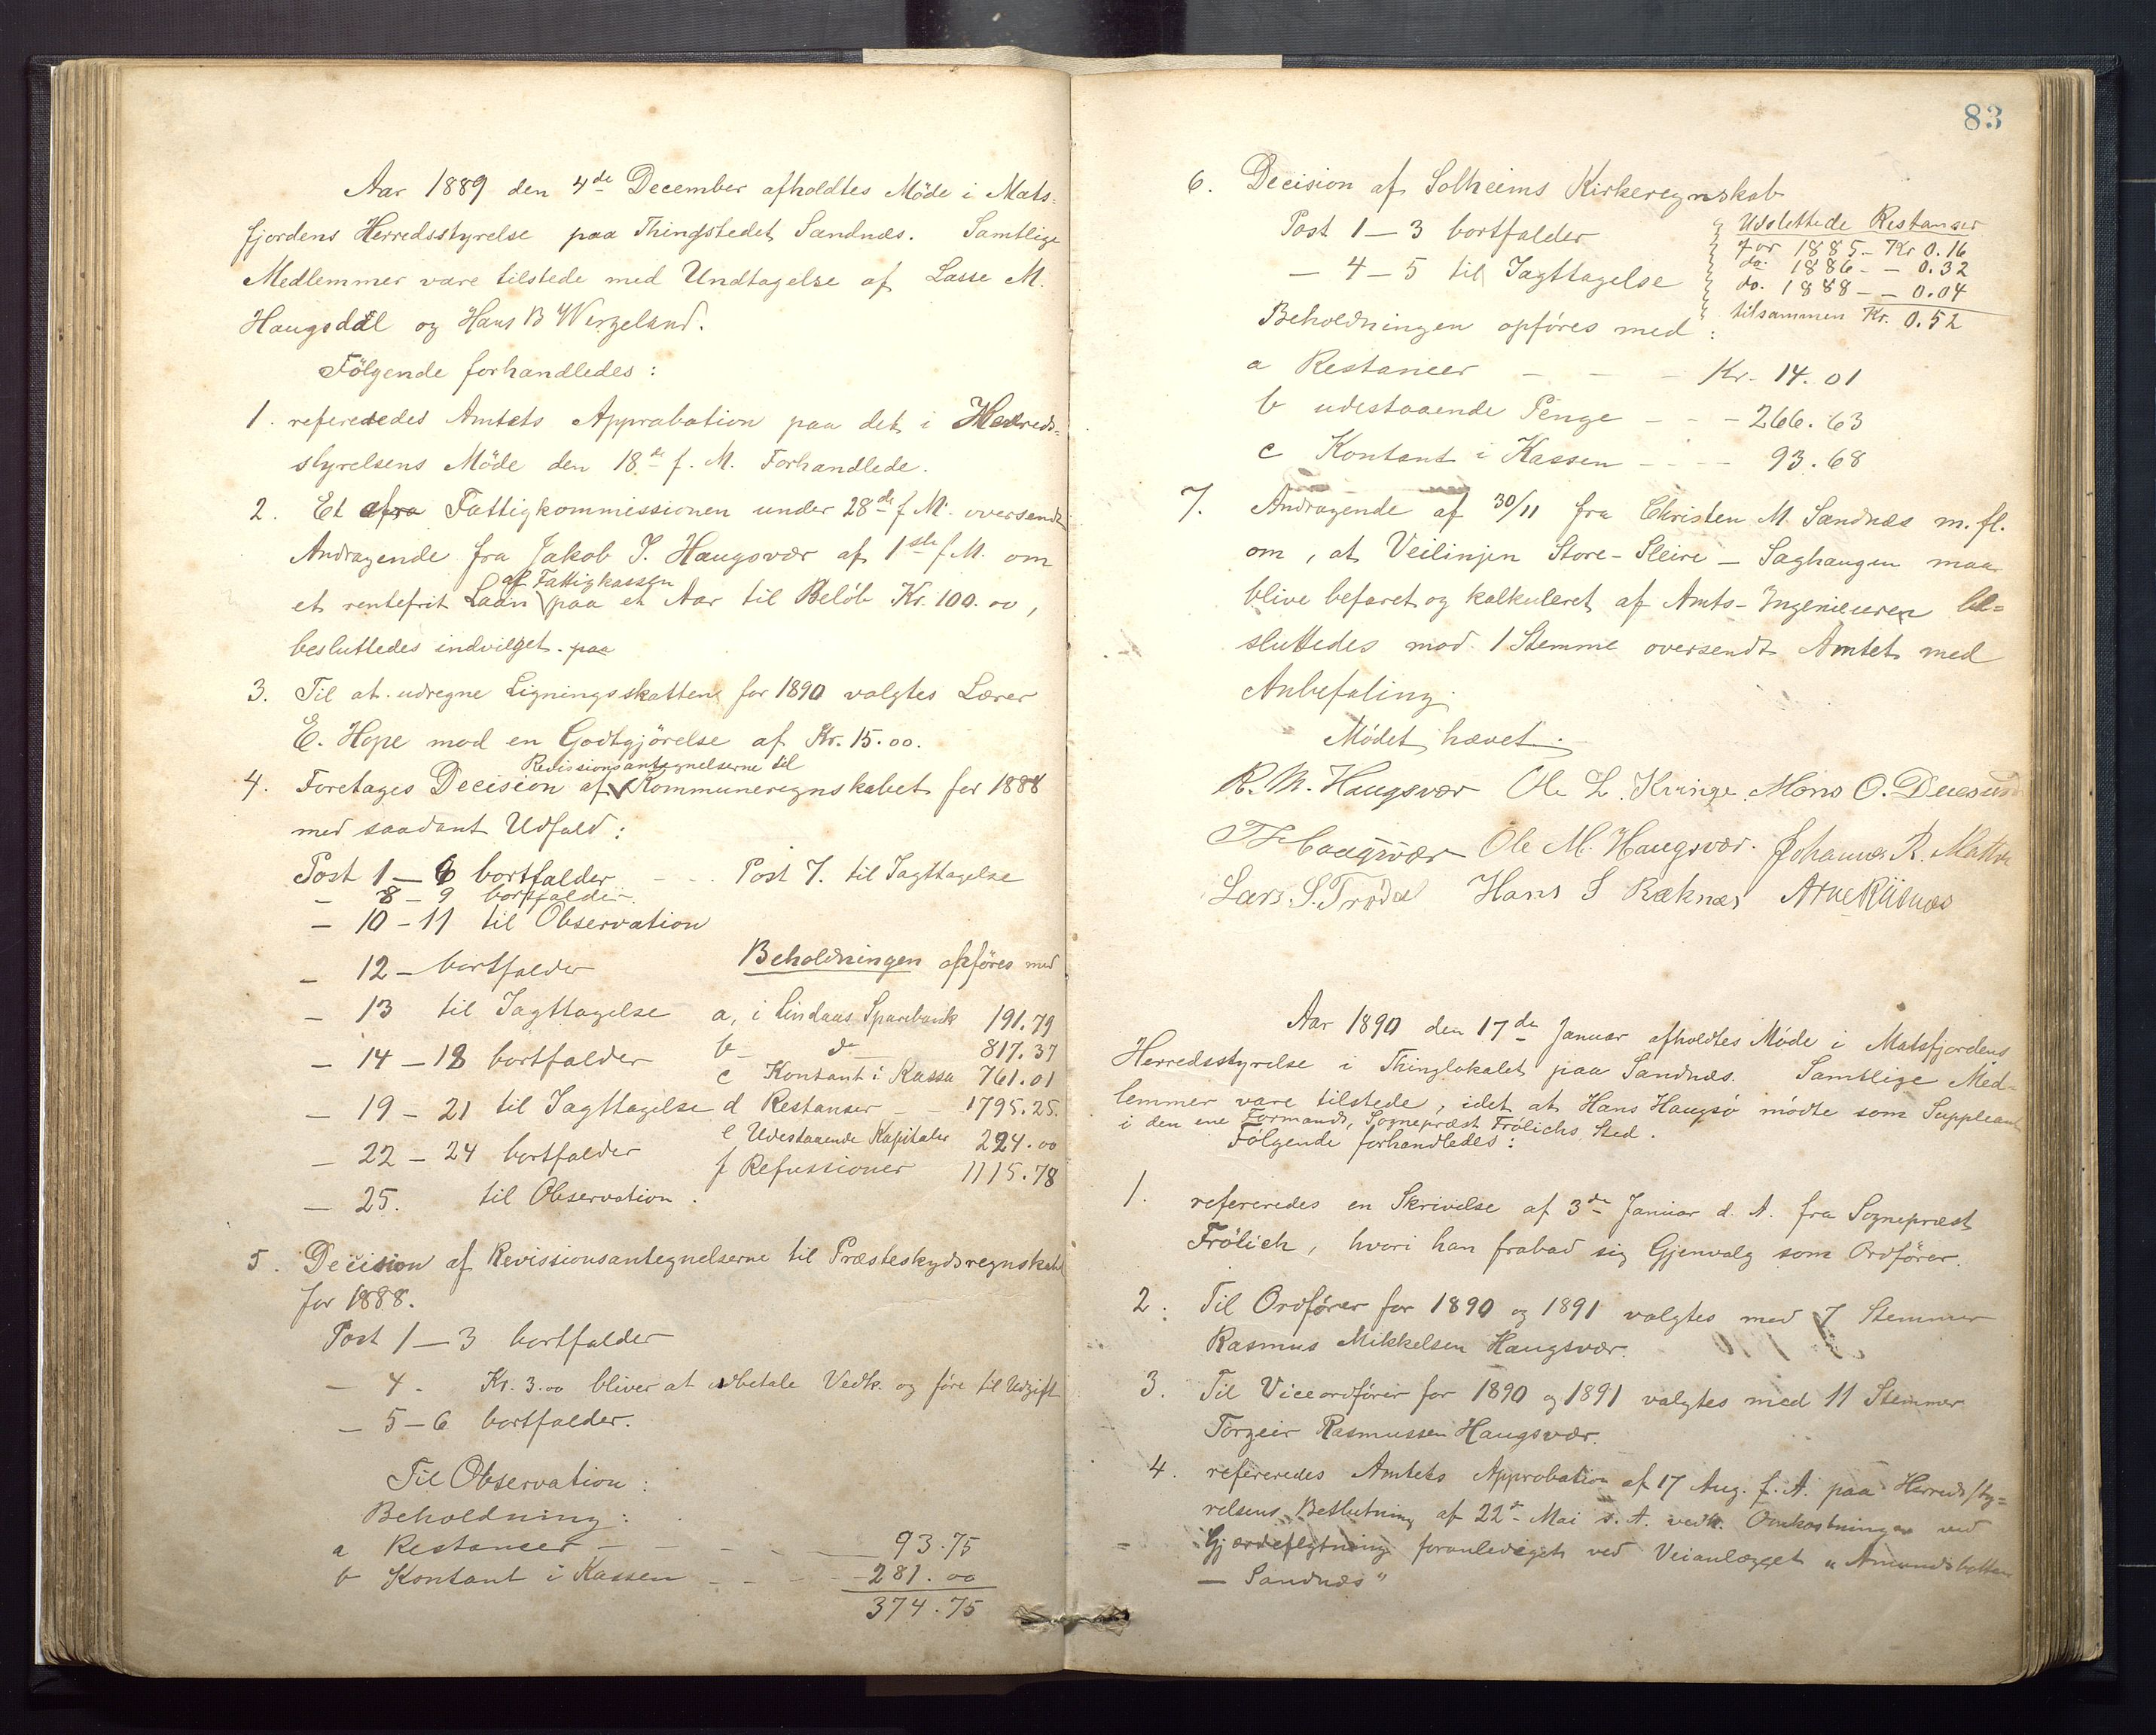 Aar 1889 den 4de December afholdtes Möde i Mats-
fjordens Herredsstyrelse paa Thingstedet Sandnæs. Samtlige
Medlemmer vare tilstede med Undtagelse af Lasse M.
Haugsdal og Hans B Wergeland.
Fölgende forhandledes:
1. refereredes Amtets Approbation paa det i Herreds-
styrelsens Möde den 18de f. M. Forhandlede.
2. Et fra Fattigkommissionen under 28de f M. oversendt
Andragende fra Jakob J. Haugsvær af 1ste f M. om
af Fattigkassen
et rentefrit Laan paa et Aar til Beløb Kr. 100.00,
besluttedes indvilget. paa
3. Til at udregne Ligningsskatten for 1890 valgtes Lærer
E. Hope mod en Godtgjörelse af Kr. 15.00.
Revissionsantegnelserne til
4. Foretages Decision af Kommuneregnskabet for 1888
med saadant Udfald:
Post 1 – 6 bortfalder – – Post 7. til Iagttagelse
– 8 – 9 bortfalder.
– 10 – 11 til Observation
– 12 – bortfalder Beholdningen opföres med
– 13 til Iagttagelse a, i Lindaas Sparebank 191.79
– 14 – 18 bortfalder b – do 817.37
c Kontant i Kassa 761.01
– 19 – 21 til Iagttagelse d Restanser – – 1795.25.
– 22 – 24 bortfalder e Udestaaende Kapitaler 224.00
f Refussioner 1115.78
– 25. til Observation.
5. Decision af Revissionsantegnelserne til Præsteskydsregnskabet
for 1888.
Post 1 – 3 bortfalder
– 4. Kr. 3.00 bliver at udbetale Vedk. og före til Udgift
– 5 – 6 bortfalder.
Til Observation:
Beholdning:
a Restanser – – – – 93.75
b Kontant i Kassen – – – – 281.00
374.75
83
6. Decision af Solheims Kirkeregnskab
Post 1 – 3 bortfalder
– 4 – 5 til Iagttagelse
Udslettede Restanser
for 1885 – Kr 0.16
do. 1886 – – 0.32
do. 1888 – – 0.04
tilsammen Kr. 0.52
Beholdningen opföres med:
a Restancer – – – Kr. 14.01
b udestaaende Penge – – – 266.63
c Kontant i Kassen – – – 93.68
7. Andragende af 30/11 fra Christen M. Sandnæs m.fl.
om, at Veilinjen Store-Sleire – Saghaugen maa
blive befaret og kalkuleret af Amts-Ingeniøren be-
sluttedes mod 1 Stemme oversendt Amtet med
Anbefaling.
Mødet hævet.
R. M. Haugsvær Ole L. Kringe Mons O.
T Haugsvær Ole M. Haugsvær. Johannes R. Matre
Lars S. Trodal Hans S Ræknæs Arne Riisnæs
Aar 1890 den 17de Januar afholdtes Møde i Matsfjordens
Herredsstyrelse i Thinglokalet paa Sandnæs. Samtlige Med-
lemmer vare tilstede, idet at Hans Haugsö mödte som Suppleant
i den ene Formands, Sognepræst Frölichs Sted.
Følgende forhandledes:
1. refereredes en Skrivelse af 3de Januar d. A. fra Sognepræst
Frölich, hvori han frabad sig Gjenvalg som Ordfører.
2. Til Ordfører for 1890 og 1891 valgtes med 7 Stemmer
Rasmus Mikkelsen Haugsvær.
3. Til Viceordfører for 1890 og 1891 valgtes med 11 Stemmer
Torgeir Rasmussen Haugsvær.
4. refereredes Amtets Approbation af 17 Aug. f. A. paa Herredssty-
relsens Beslutning af 22de Mai s. A. vedk. Omkostninger ved
Gjærdeflytning foranlediget ved Veianlægget "Amundsbotten
– Sandnæs"